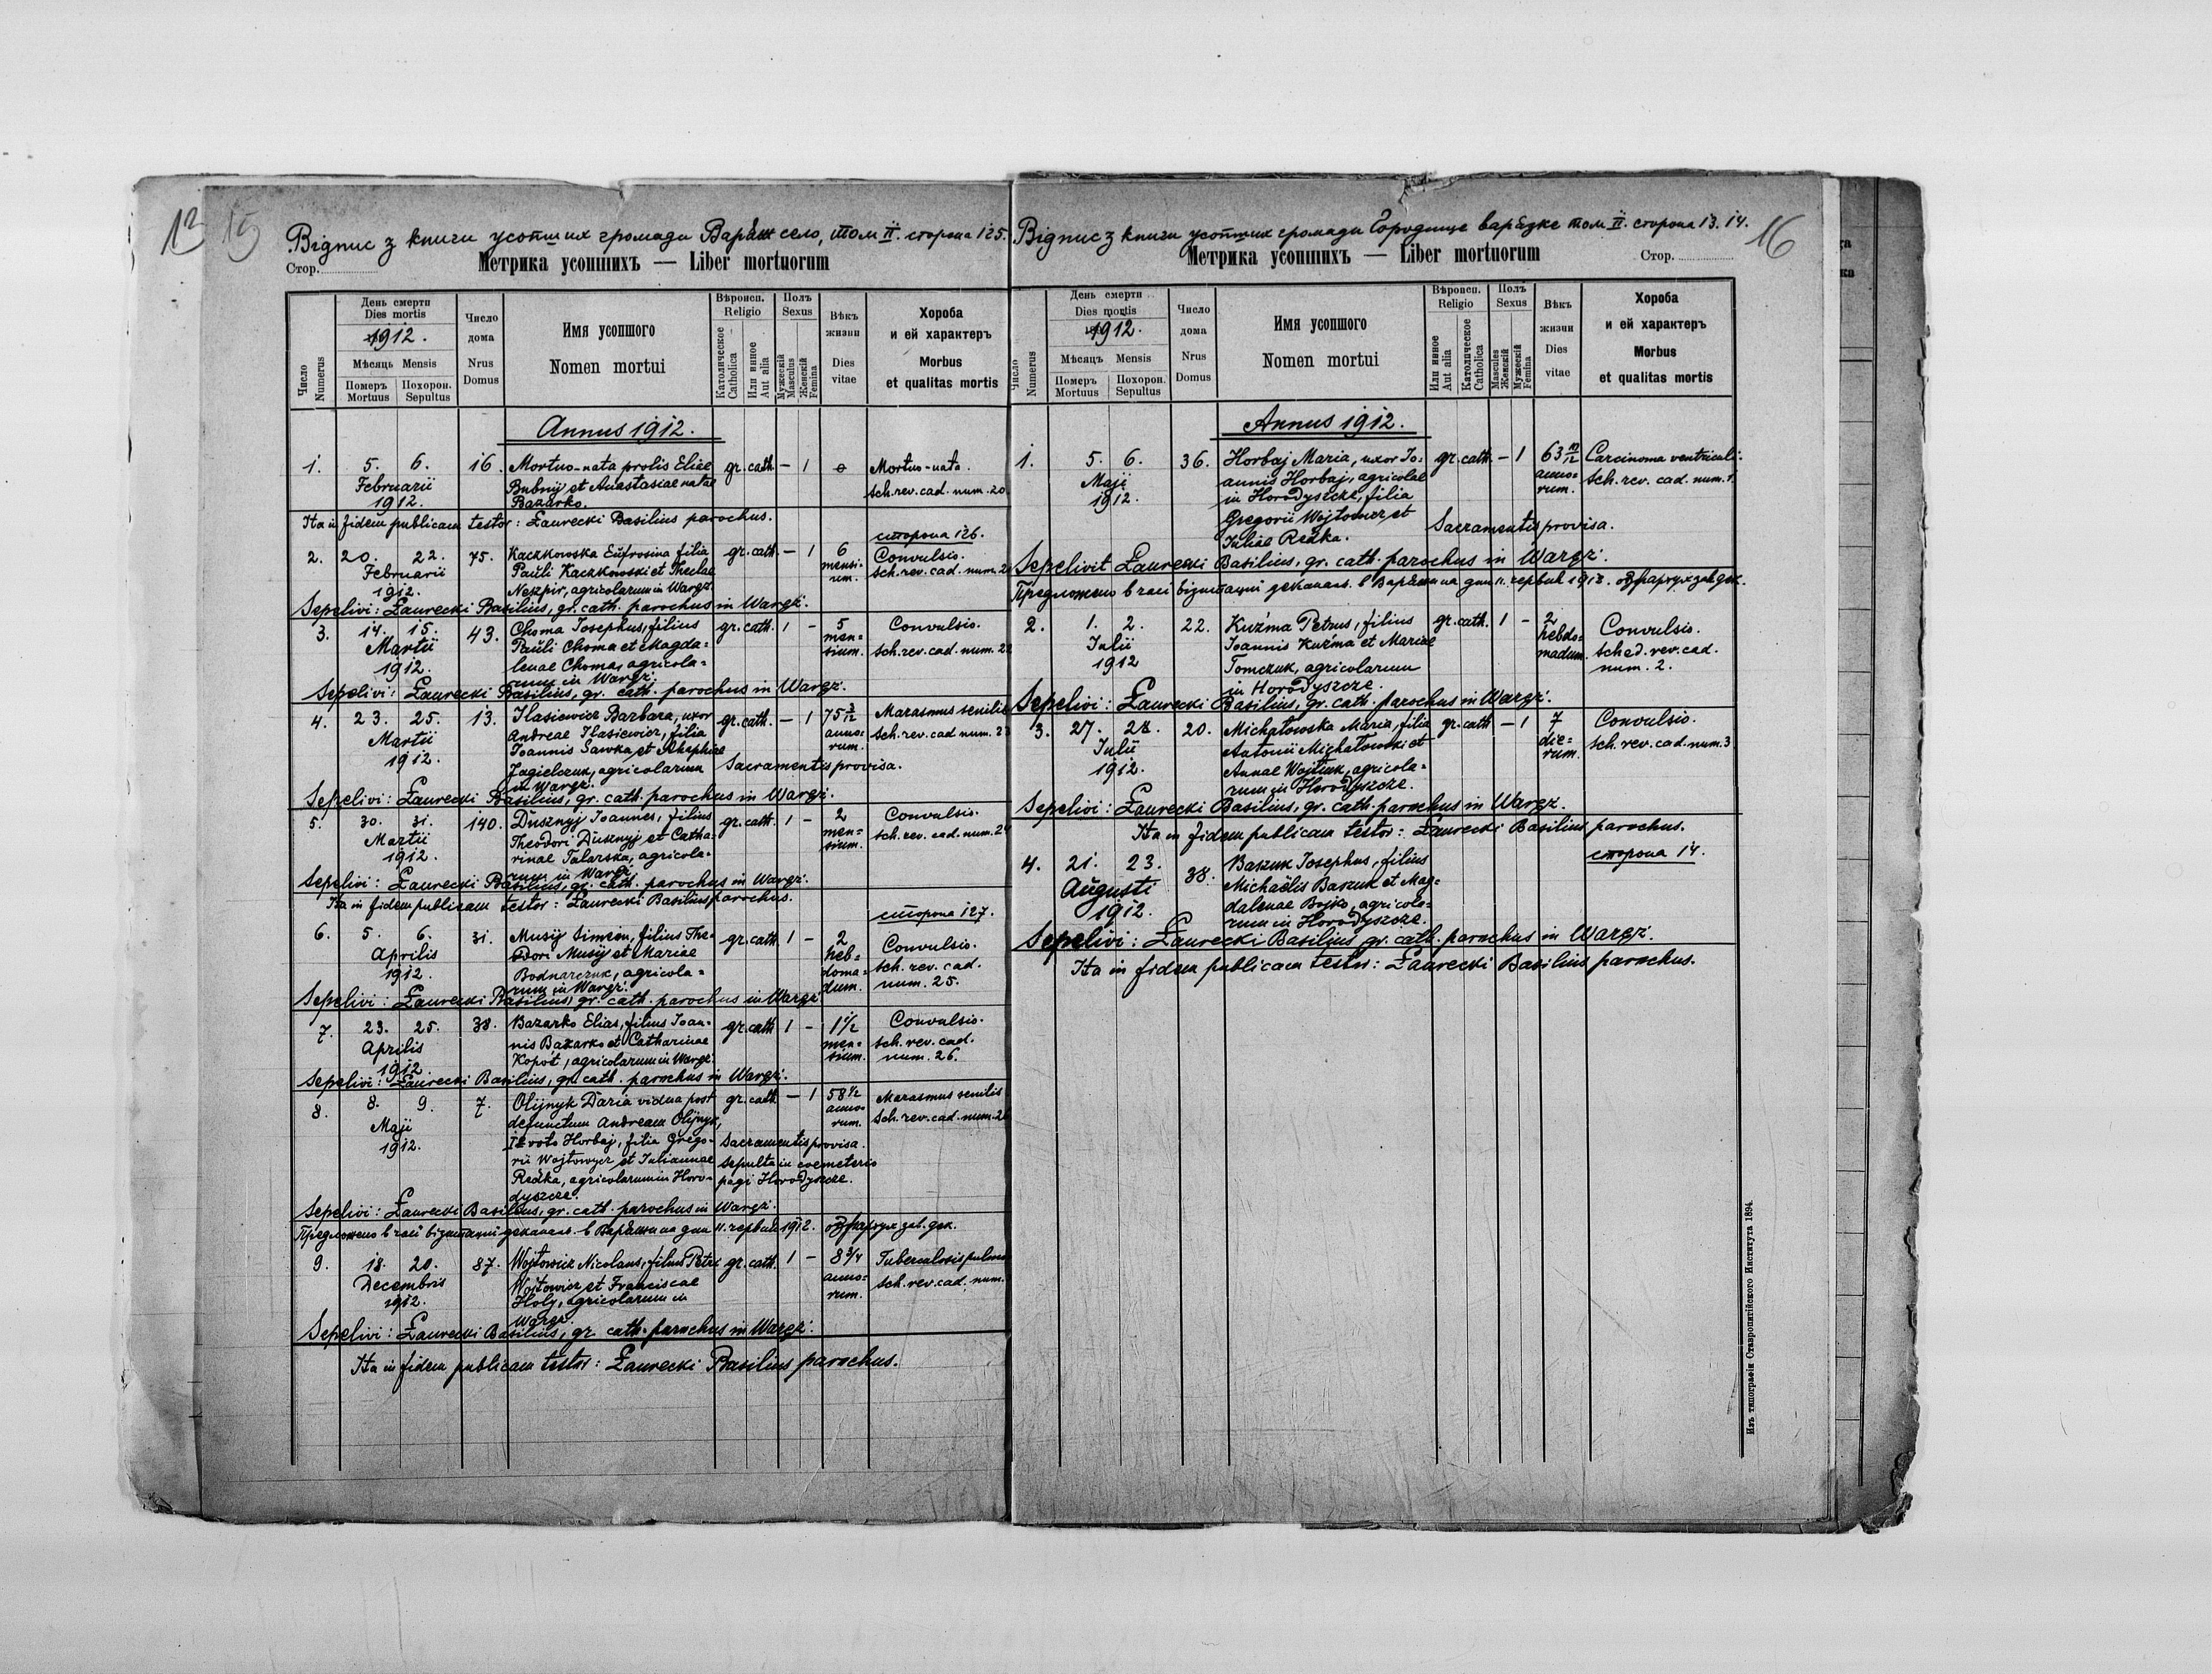 13 15
Відпис з книги усопших громади Варяж село, том II. сторона 125.
Стор.
Метрика усопшихъ — Liber mortuorum
Число Numerus
День смерти Dies mortis
1912.
Мѣсяць Mensis
Померъ Mortuus
Похорон. Sepultus
Число дома Nrus Domus
Имя усопшого Nomen mortui
Вѣроисп. Religio
Католическое Catholica
Или инное Aut alia
Полъ Sexus
Мужескій Masculus
Женскій Femina
Вѣкъ жизни Dies vitae
Хороба и ей характеръ Morbus et qualitas mortis
Annus 1912.
1. 5. 6. 16. Mortuo-nata prolis Eliae gr. cath. — 1 0 Mortuo-nata.
Februarii Bubnij et Anastasiae natae sch. rev. cad. num. 20
1912. Bazarko.
Ita in fidem publicam testor: Ławrecki Basilius parochus.
сторона 126.
2. 20. 22. 75. Kaczkowska Eufrosina filia gr. cath. — 1 6 Convulsio.
Februarii Pauli Kaczkowski et Theclae mensi- sch. rev. cad. num. 2
1912. Neszpir, agricolarum in Wargż. rum.
Sepelivi: Ławrecki Basilius, gr. cath. parochus in Wargż.
3. 14. 15. 43. Choma Josephus, filius gr. cath. 1 — 5 Convulsio.
Martii Pauli Choma et Magda= men= sch. rev. cad. num. 22
1912. lenae Choma, agricola= sium.
rum in Wargż.
Sepelivi: Ławrecki Basilius, gr. cath. parochus in Wargż.
4. 23. 25. 13. Ilasiewicz Barbara, uxor gr. cath. — 1 75 3/12 Marasmus senilis
Martii Andreae Ilasiewicz, filia anno= sch. rev. cad num. 23
1912. Joannis Sawka, et Ahaphiae rum.
Jagielczuk, agricolarum Sacramentis provisa.
in Wargż.
Sepelivi: Ławrecki Basilius, gr. cath. parochus in Wargż.
5. 30. 31. 140. Dusznyj Joannes, filius gr. cath. 1 — 2 Convulsio.
Martii Theodori Dusznyj et Catha= men= sch. rev. cad. num. 24
1912. rinae Talarska, agricola= sium.
rum in Wargż.
Sepelivi: Ławrecki Basilius, gr. cath. parochus in Wargż.
Ita in fidem publicam testor: Ławrecki Basilius parochus.
сторона 127.
6. 5. 6. 31. Musij Simeon, filius The= gr. cath. 1 — 2 Convulsio.
Aprilis odori Musij et Mariae heb= sch. rev. cad.
1912. Bodnarczuk, agricola= doma= num. 25.
rum in Wargż. dum.
Sepelivi: Ławrecki Basilius, gr. cath. parochus in Wargż
7. 23. 25. 38. Bazarko Elias, filius Joan= gr. cath 1 — 1 1/2 Convulsio.
Aprilis nis Bazarko et Catharinae men= sch. rev. cad.
1912. Kopot, agricolarum in Wargż. sium. num. 26.
Sepelivi: Ławrecki Basilius, gr. cath. parochus in Wargż.
8. 8. 9. 7. Olijnyk Daria vidua post gr. cath — 1 58 1/2 Marasmus senilis
Maji defunctum Andream Olijnyk, anno= sch. rev. cad. num. 2
1912. voto Horbaj, filia Grego= rum. Sacramentis provisa.
rii Wojtowycz et Juliannae sepulta in coemeterio
Redka, agricolarum in Horo= pagi Horodyszcze.
dyszcze.
Sepelivi: Ławrecki Basilius, gr. cath. parochus in Wargż.
Предложено в часі візитації деканаль. в Варяжи на дни 11. червня 1912.
9. 18. 20. 87. Wojtowicz Nicolaus, filius Petri gr. cath. 1 — 8 3/4 Tuberculosis pulmo
Decembris Wojtowicz et Franciscae anno= sch. rev. cad. num.
1912. Holy, agricolarum in rum.
Wargż.
Sepelivi: Ławrecki Basilius, gr. cath. parochus in Wargż.
Ita in fidem publicam testor: Ławrecki Basilius parochus.
16
Відпис з книги усопших громади Городище варязке том II. сторона 13. 14.
Метрика усопшихъ — Liber mortuorum
Стор.
Число Numerus
День смерти Dies mortis
1912.
Мѣсяцъ Mensis
Померъ Mortuus
Похорон. Sepultus
Число дома Nrus Domus
Имя усопшого Nomen mortui
Вѣроисп. Religio
Или инное Aut alia
Католическое Catholica
Полъ Sexus
Mascules Женскій
Мужескій Femina
Вѣкъ жизни Dies vitae
Хороба и ей характеръ Morbus et qualitas mortis
Annus 1912.
1. 5. 6. 36. Horbaj Maria, uxor Jo= gr. cath. — 1 63 10/12 Carcinoma ventriculi.
Maji annis Horbaj, agricolae anno= sch. rev. cad. num. 1.
1912. in Horodyszcze, filia rum.
Gregorii Wojtowicz, et Sacramentis provisa.
Juliae Redka.
Sepelivit Ławrecki Basilius, gr. cath. parochus in Wargż.
Предложено в часі візитації деканаль. в Варяжи на дни 11. червня 1912.
2. 1. 2. 22. Kuźma Petrus, filius gr. cath. 1 — 2 Convulsio.
Julii Joannis Kuźma et Mariae hebdo= sched. rev. cad.
1912 Tomczuk, agricolarum madum. num. 2.
in Horodyszcze.
Sepelivi: Ławrecki Basilius, gr. cath. parochus in Wargż.
3. 27. 28. 20. Michałowska Maria, filia gr. cath — 1 7 Convulsio.
Julii Antonii Michałowski et die= sch. rev. cad. num. 3
1912. Annae Wojtiuk, agricola= rum.
rum in Horodyszcze.
Sepelivi: Ławrecki Basilius, gr. cath. parochus in Wargż.
Ita in fidem publicam testor: Ławrecki Basilius parochus.
сторона 14.
4. 21. 23. 38. Baszuk Josephus, filius
Augusti Michaëlis Baszuk et Mag=
1912. dalenae Bojko, agricola=
rum in Horodyszcze.
Sepelivi: Ławrecki Basilius, gr. cath. parochus in Wargż.
Ita in fidem publicam testor: Ławrecki Basilius parochus.
Изъ типографіи Ставропигійского Института 1894.